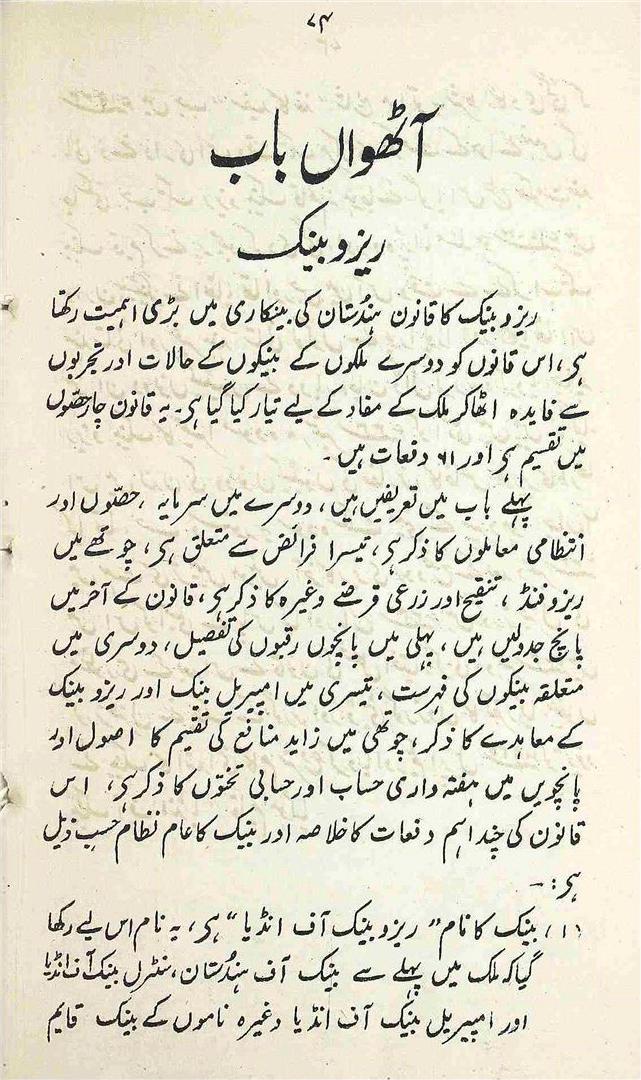 ۷۴
آٹھواں باب
ریزو بینک
ریزو بینک کا قانون ہندُستان کی بینکاری میں بڑی اہمیت رکھتا
ہی، اس قانون کو دوسرے ملکوں کے بینکوں کے حالات اور تجربوں
سے فایدہ اٹھا کر ملک کے مفاد کے لیے تیار کیا گیا ہی۔ یہ قانون چار حصّوں
میں تقسیم ہی اور ۶۱ دفعات ہیں۔
پہلے باب میں تعریفیں ہیں، دوسرے میں سرمایہ، حصّوں اور
انتظامی معاملوں کا ذکر ہی، تیسرا فرائض سے متعلق ہی، چوتھے میں
ریزو فنڈ، تنقیح اور زرعی قرضے وغیرہ کا ذکر ہی، قانون کے آخر میں
پانچ جدولیں ہیں، پہلی میں پانچوں رقبوں کی تفصیل، دوسری میں
متعلقہ بینکوں کی فہرست، تیسری میں امپیریل بینک اور ریزو بینک
کے معاہدے کا ذکر، چوتھی میں زاید منافع کی تقیم کا اصول اور
پانچویں میں ہفتہ واری حساب اور حسابی تختوں کا ذکر ہی، اس
قانون کی چند اہم دفعات کا خلاصہ اور بینک کا عام نظام حسب ذیل
ہی:۔
(۱) بینک کا نام "ریزو بینک آف انڈیا" ہی، یہ نام اس لیے رکھا
گیا کہ ملک میں پہلے سے بینک آف ہندُستان، سنٹرل بینک آف انڈیا
اور امپیریل بینک آف انڈیا وغیرہ ناموں کے بینک قایم